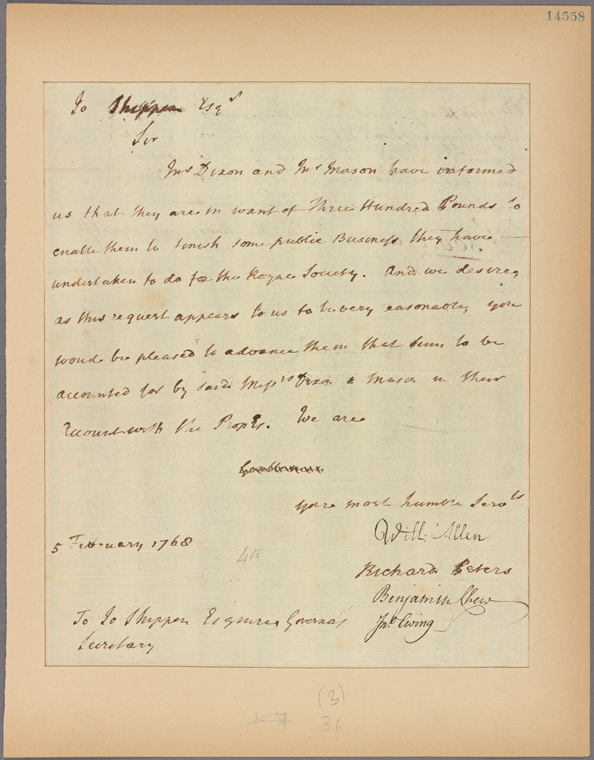 14558
To Shippen Esqr
Sir
Mr Dixon and Mr Mason have informed
us that they are in want of Three Hundred Pounds to
enable them to finish some public Business they have
undertaken to do for the Royal Society. And we desire,
as this request appears to us to be very reasonable, you
would be pleased to advance them that sum to be
accounted for by said Messrs Dixon & Mason in their
Account with the Proprs. We are
Gentlemen
your most humble Servts
Will: Allen
5 February 1768
4to
Richard Peters
Benjamin Chew
Jno Ewing
To Jo Shippen Esquire Governors
Secretary
(3)
36